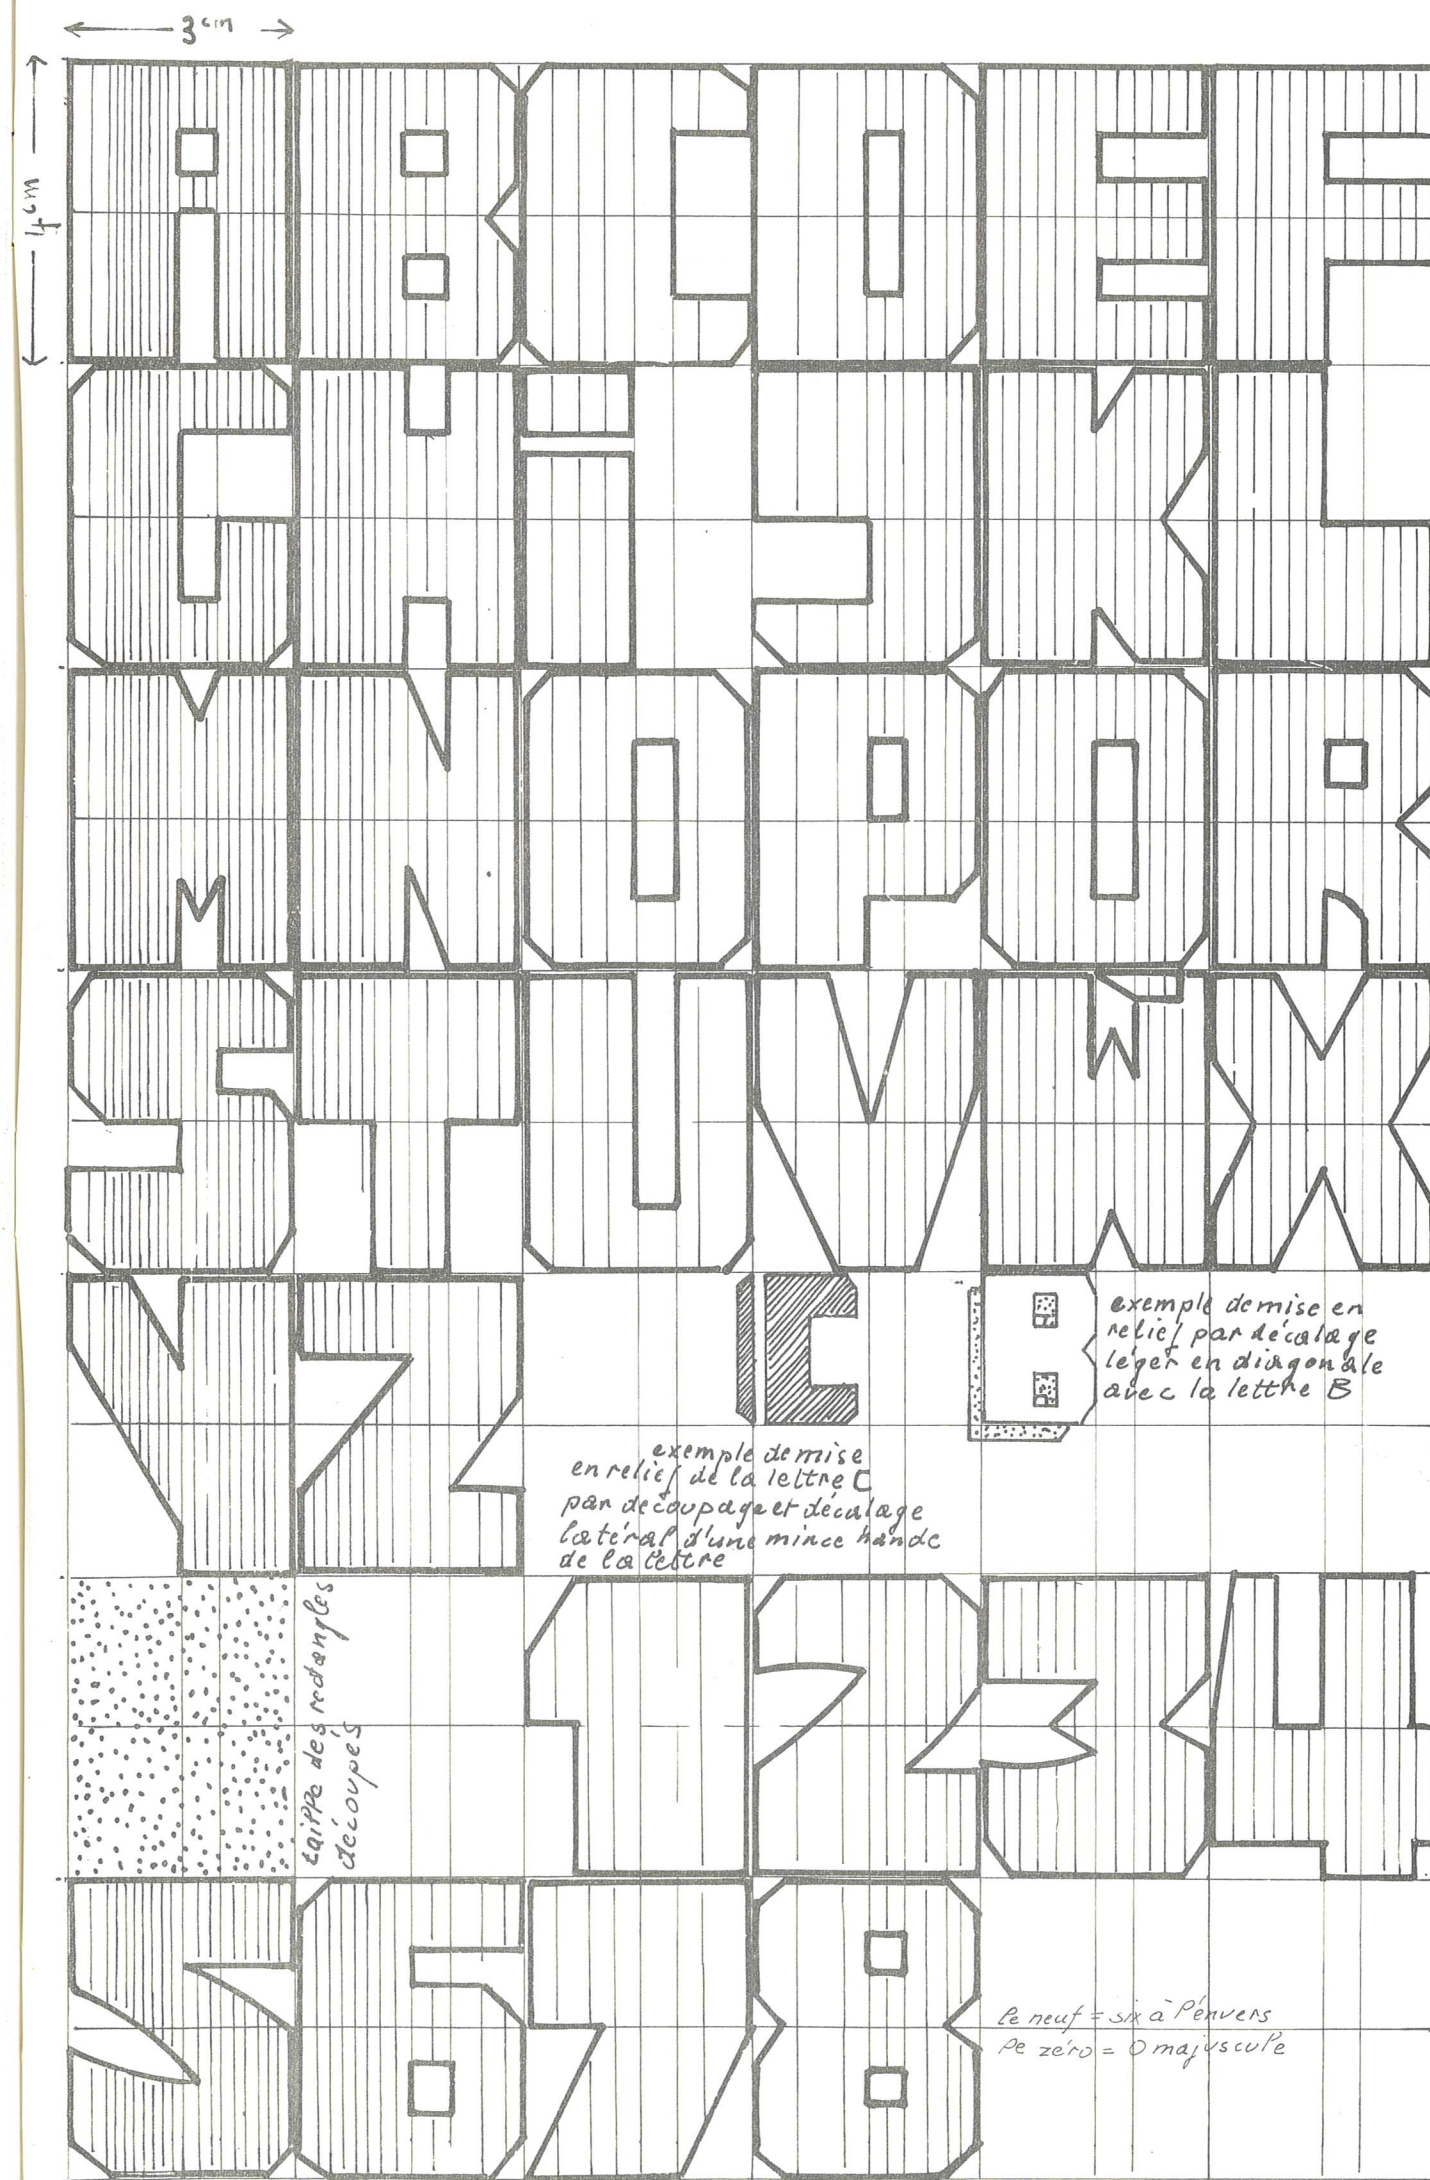 3cm
4cm
A B C D E F
G H I J K L
M N O P Q R
S T U V W X
Y Z
C
B
exemple de mise en
relief par décalage
léger en diagonale
avec la lettre B
exemple de mise
en relief de la lettre C
par découpage et décalage
latéral d'une mince bande
de la lettre
taille des rectangles
découpés
1 2 3 4
5 6 7 8
le neuf = six à l'envers
le zéro = O majuscule